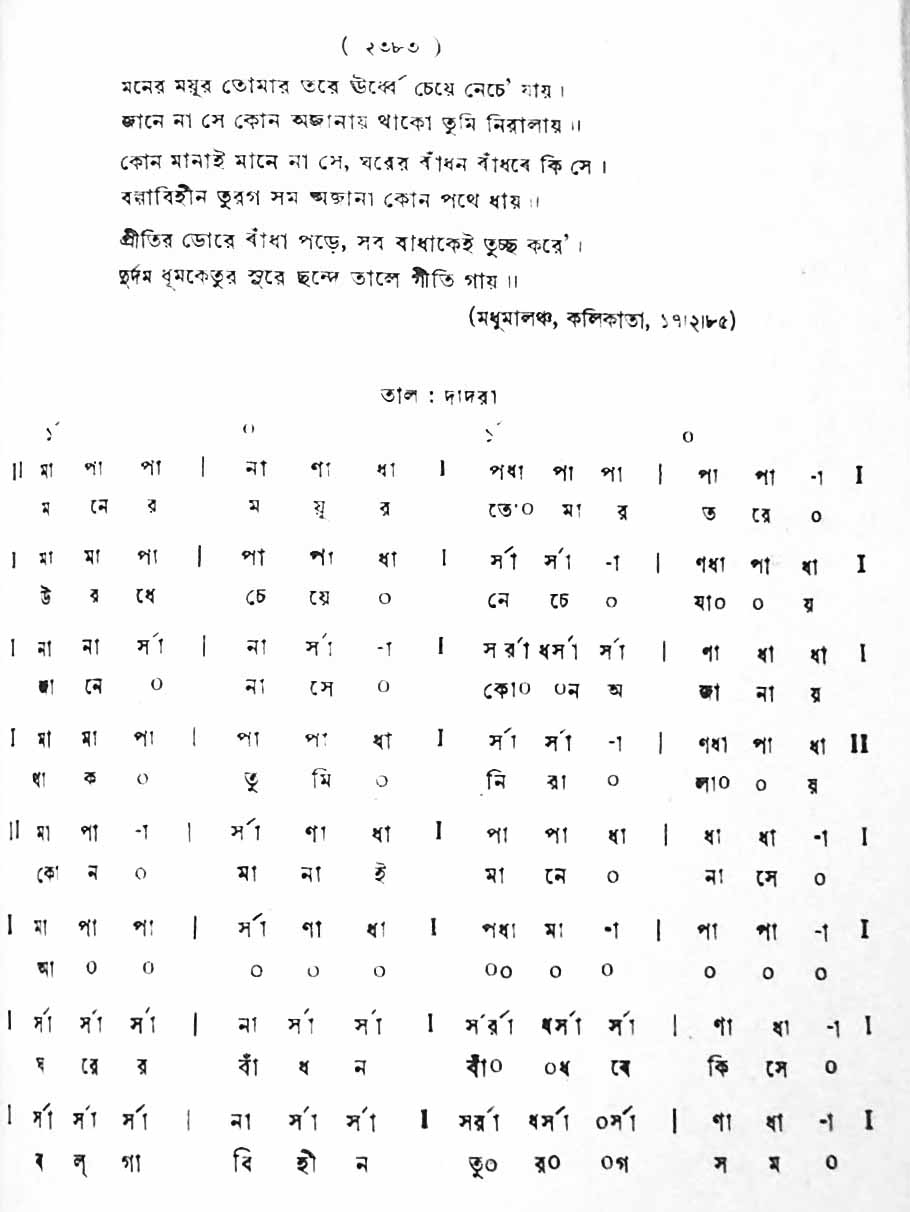 ( ২৩৮৩ )
মনের ময়ূর তোমার তরে ঊর্ধ্বে চেয়ে নেচে' যায়।
জানে না সে কোন অজানায় থাকো তুমি নিরালায়॥
কোন মানাই মানে না সে, ঘরের বাঁধন বাঁধবে কি সে।
বল্গাবিহীন তুরগ সম অজানা কোন পথে ধায়॥
প্রীতির ডোরে বাঁধা পড়ে, সব বাধাকেই তুচ্ছ করে'।
দুর্দম ধূমকেতুর সুরে ছন্দে তালে গীতি গায়॥
(মধুমালঞ্চ, কলিকাতা, ১৭।২।৮৫)
তাল : দাদরা
১´ ০ ১´ ০
II মা পা পা | না ণা ধা I পধা পা পা | পা পা -া I
ম নে র ম য়ূ র তো০ মা র ত রে ০
I মা মা পা | পা পা ধা I র্সা র্সা -া | ণধা পা ধা I
উ র ধে চে য়ে ০ নে চে ০ যা০ ০ য়
I না না র্সা | না র্সা -া I সর্রা ধর্সা র্সা | ণা ধা ধা I
জা নে ০ না সে ০ কো০ ০ন অ জা না য়
I মা মা পা | পা পা ধা I র্সা র্সা -া | ণধা পা ধা II
থা ক ০ তু মি ০ নি রা ০ লা০ ০ য়
II মা পা -া | র্সা ণা ধা I পা পা ধা | ধা ধা -া I
কো ন ০ মা না ই মা নে ০ না সে ০
I মা পা পা | র্সা ণা ধা I পধা মা -া | পা পা -া I
আ ০ ০ ০ ০ ০ ০০ ০ ০ ০ ০ ০
I র্সা র্সা র্সা | না র্সা র্সা I র্সর্রা ধর্সা র্সা | ণা ধা -া I
ঘ রে র বাঁ ধ ন বাঁ০ ০ধ বে কি সে ০
I র্সা র্সা র্সা | না র্সা র্সা I সর্রা ধর্সা ০র্সা | ণা ধা -া I
ব ল্ গা বি হী ন তু০ র০ ০গ স ম ০